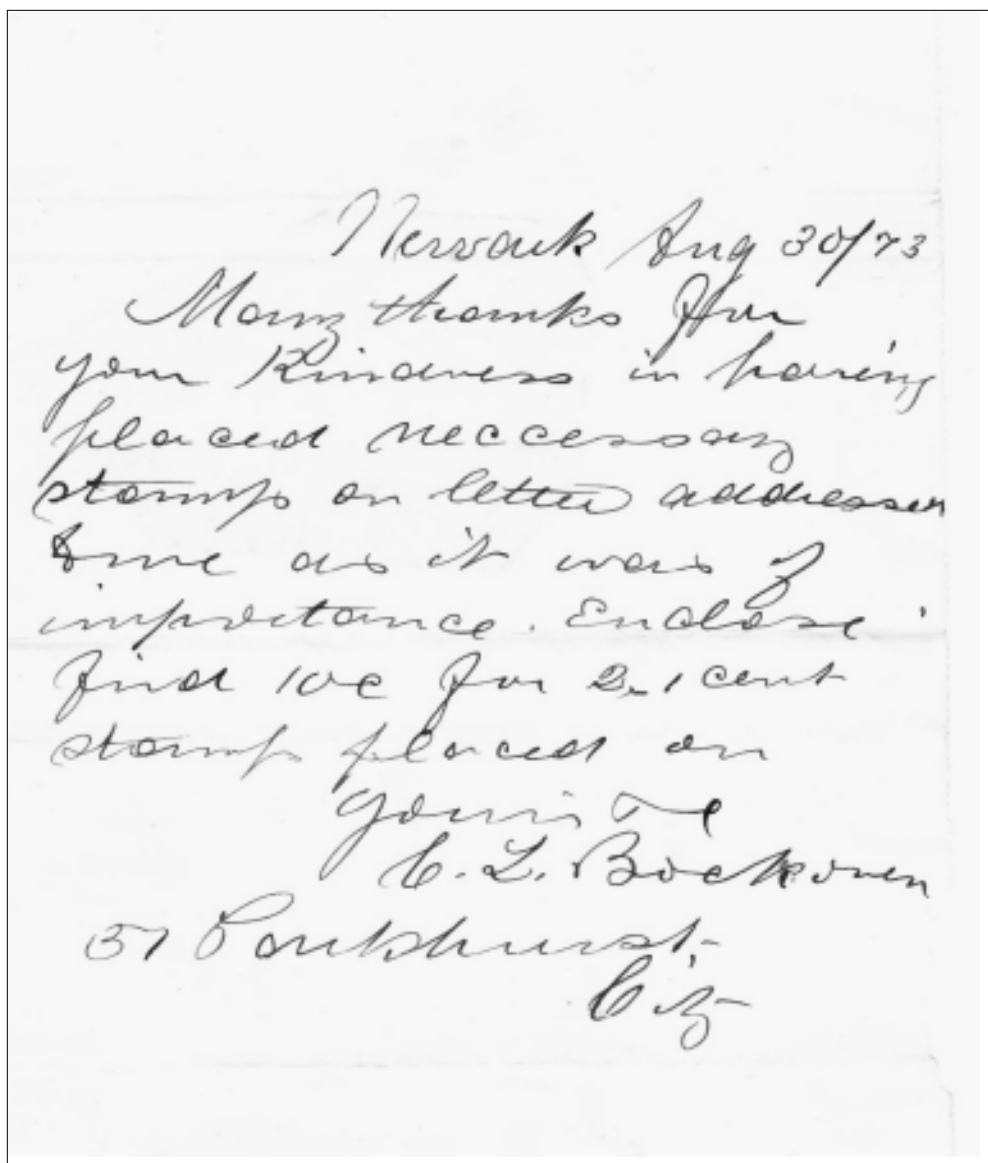 Newark Aug 30/73
Many thanks for
your Kindness in having
placed neccessary
stamps on letter addressed
to me as it was of
importance. Enclose
find 10c for 2-1 cent
stamps placed on
yours
C. L. Bockoven
57 Parkhurst
City